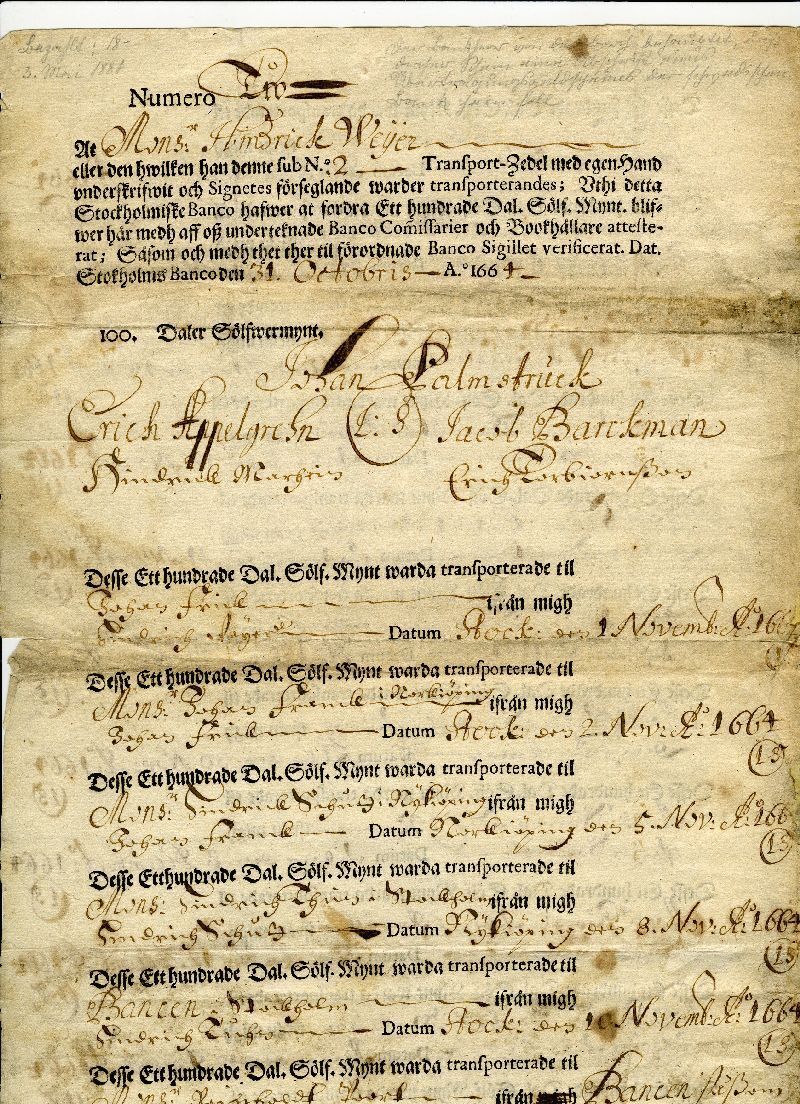 3. Mai 1881
Numero Two
At Mons:r Hindrick Weyer
eller den hwilken han denne sub N.o 2 Transport-Zedel med egen Hand
underskrifwit och Signetes förseglande warder transporterandes; Uthi detta
Stockholmiske Banco hafwer at fordra Ett hundrade Dal. Sölf. Mynt. blif-
wer här medh aff oß underteknade Banco Comissarier och Bookhållare atteste-
rat; Såsom och medh thet ther til förordnade Banco Sigillet verificerat. Dat.
Stokholms Banco den 31. Octobris A.o 1664
100. Daler Sölfwermynt.
Johan Palmstruck
Erich Appelgrehn (L: S) Jacob Barckman
Hindrick Erich Torbiörnßon
Desse Ett hundrade Dal. Sölf. Mynt warda transporterade til
Johan Frick ifrån migh
Hindrich Weyer Datum Stock: den 1 Novemb: A:o 166
Desse Ett hundrade Dal. Sölf. Mynt warda transporterade til
Mons:r Johan Franck Norkiöping ifrån migh
Johan Frick Datum Stock: den 2. Nov: A:o 1664
(15)
Desse Ett hundrade Dal. Sölf. Mynt warda transporterade til
Mons:r Hindrick Schultz Nyköping ifrån migh
Johan Franck Datum Norkiöping den 5. Nov: A:o 166
(15)
Desse Ett hundrade Dal. Sölf. Mynt warda transporterade til
Mons: Hindrich Stockholm ifrån migh
Hindrich Schultz Datum Nykiöping den 8. Nov: A:o 1664
(15)
Desse Ett hundrade Dal. Sölf. Mynt warda transporterade til
Bancen Stockholm ifrån migh
Hindrich Datum Stock: den 10 Novemb: A:o 1664
(15)
Desse Ett hundrade Dal. Sölf. Mynt warda transporterade til
Mons: ifrån migh Bancen